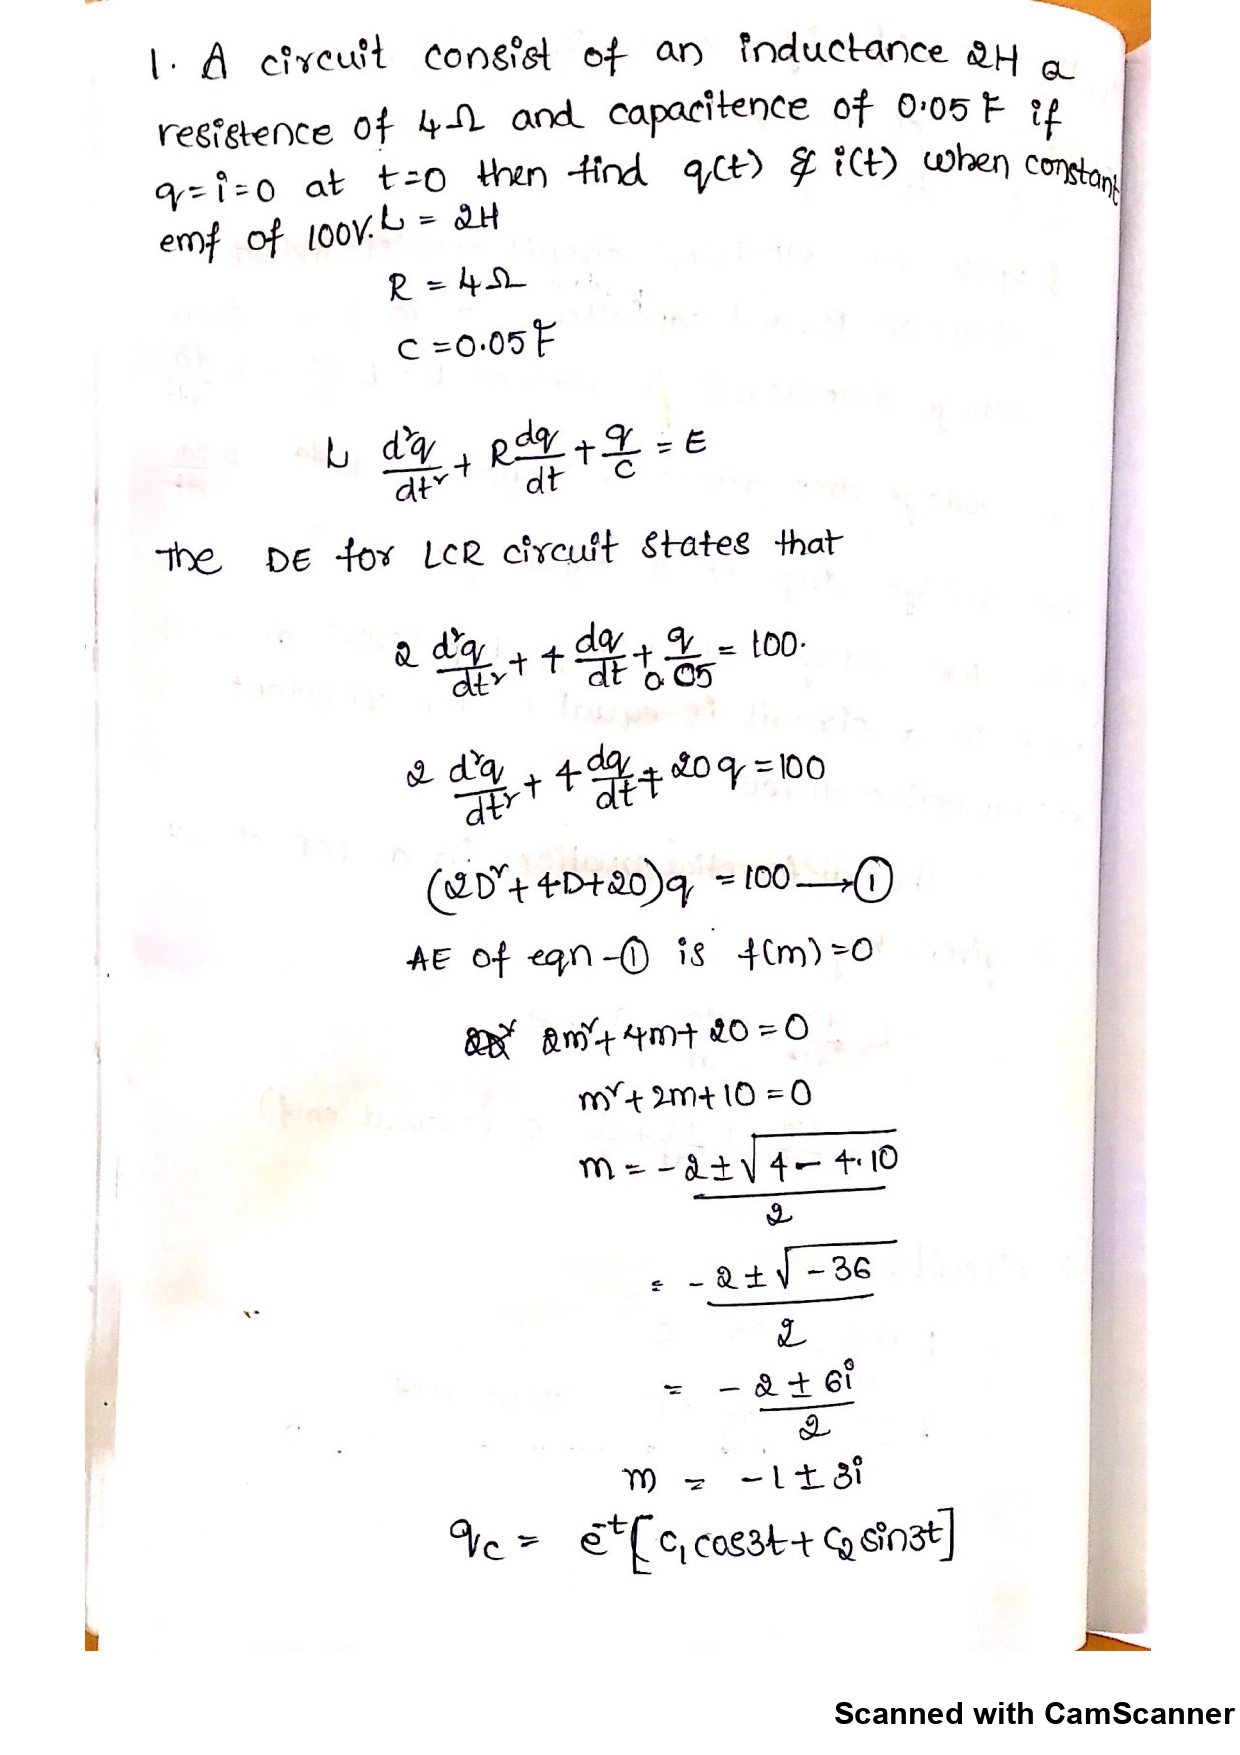 1. A circuit consist of an inductance 2H a
resistence of 4Ω and capacitence of 0.05 F if
q = i = 0 at t=0 then find q(t) & i(t) when constant
emf of 100V. L = 2H
R = 4Ω
C = 0.05 F
L d²q/dt² + R dq/dt + q/c = E
The DE for LCR circuit states that
2 d²q/dt² + 4 dq/dt + q/0.05 = 100.
2 d²q/dt² + 4 dq/dt + 20q = 100
(2D² + 4D + 20)q = 100 → ①
AE of eqn - ① is f(m) = 0
2m² + 4m + 20 = 0
m² + 2m + 10 = 0
m = -2 ± √4 - 4.10 / 2
= -2 ± √-36 / 2
= -2 ± 6i / 2
m = -1 ± 3i
qc = e^-t [c₁ cos3t + c₂ sin3t]
Scanned with CamScanner